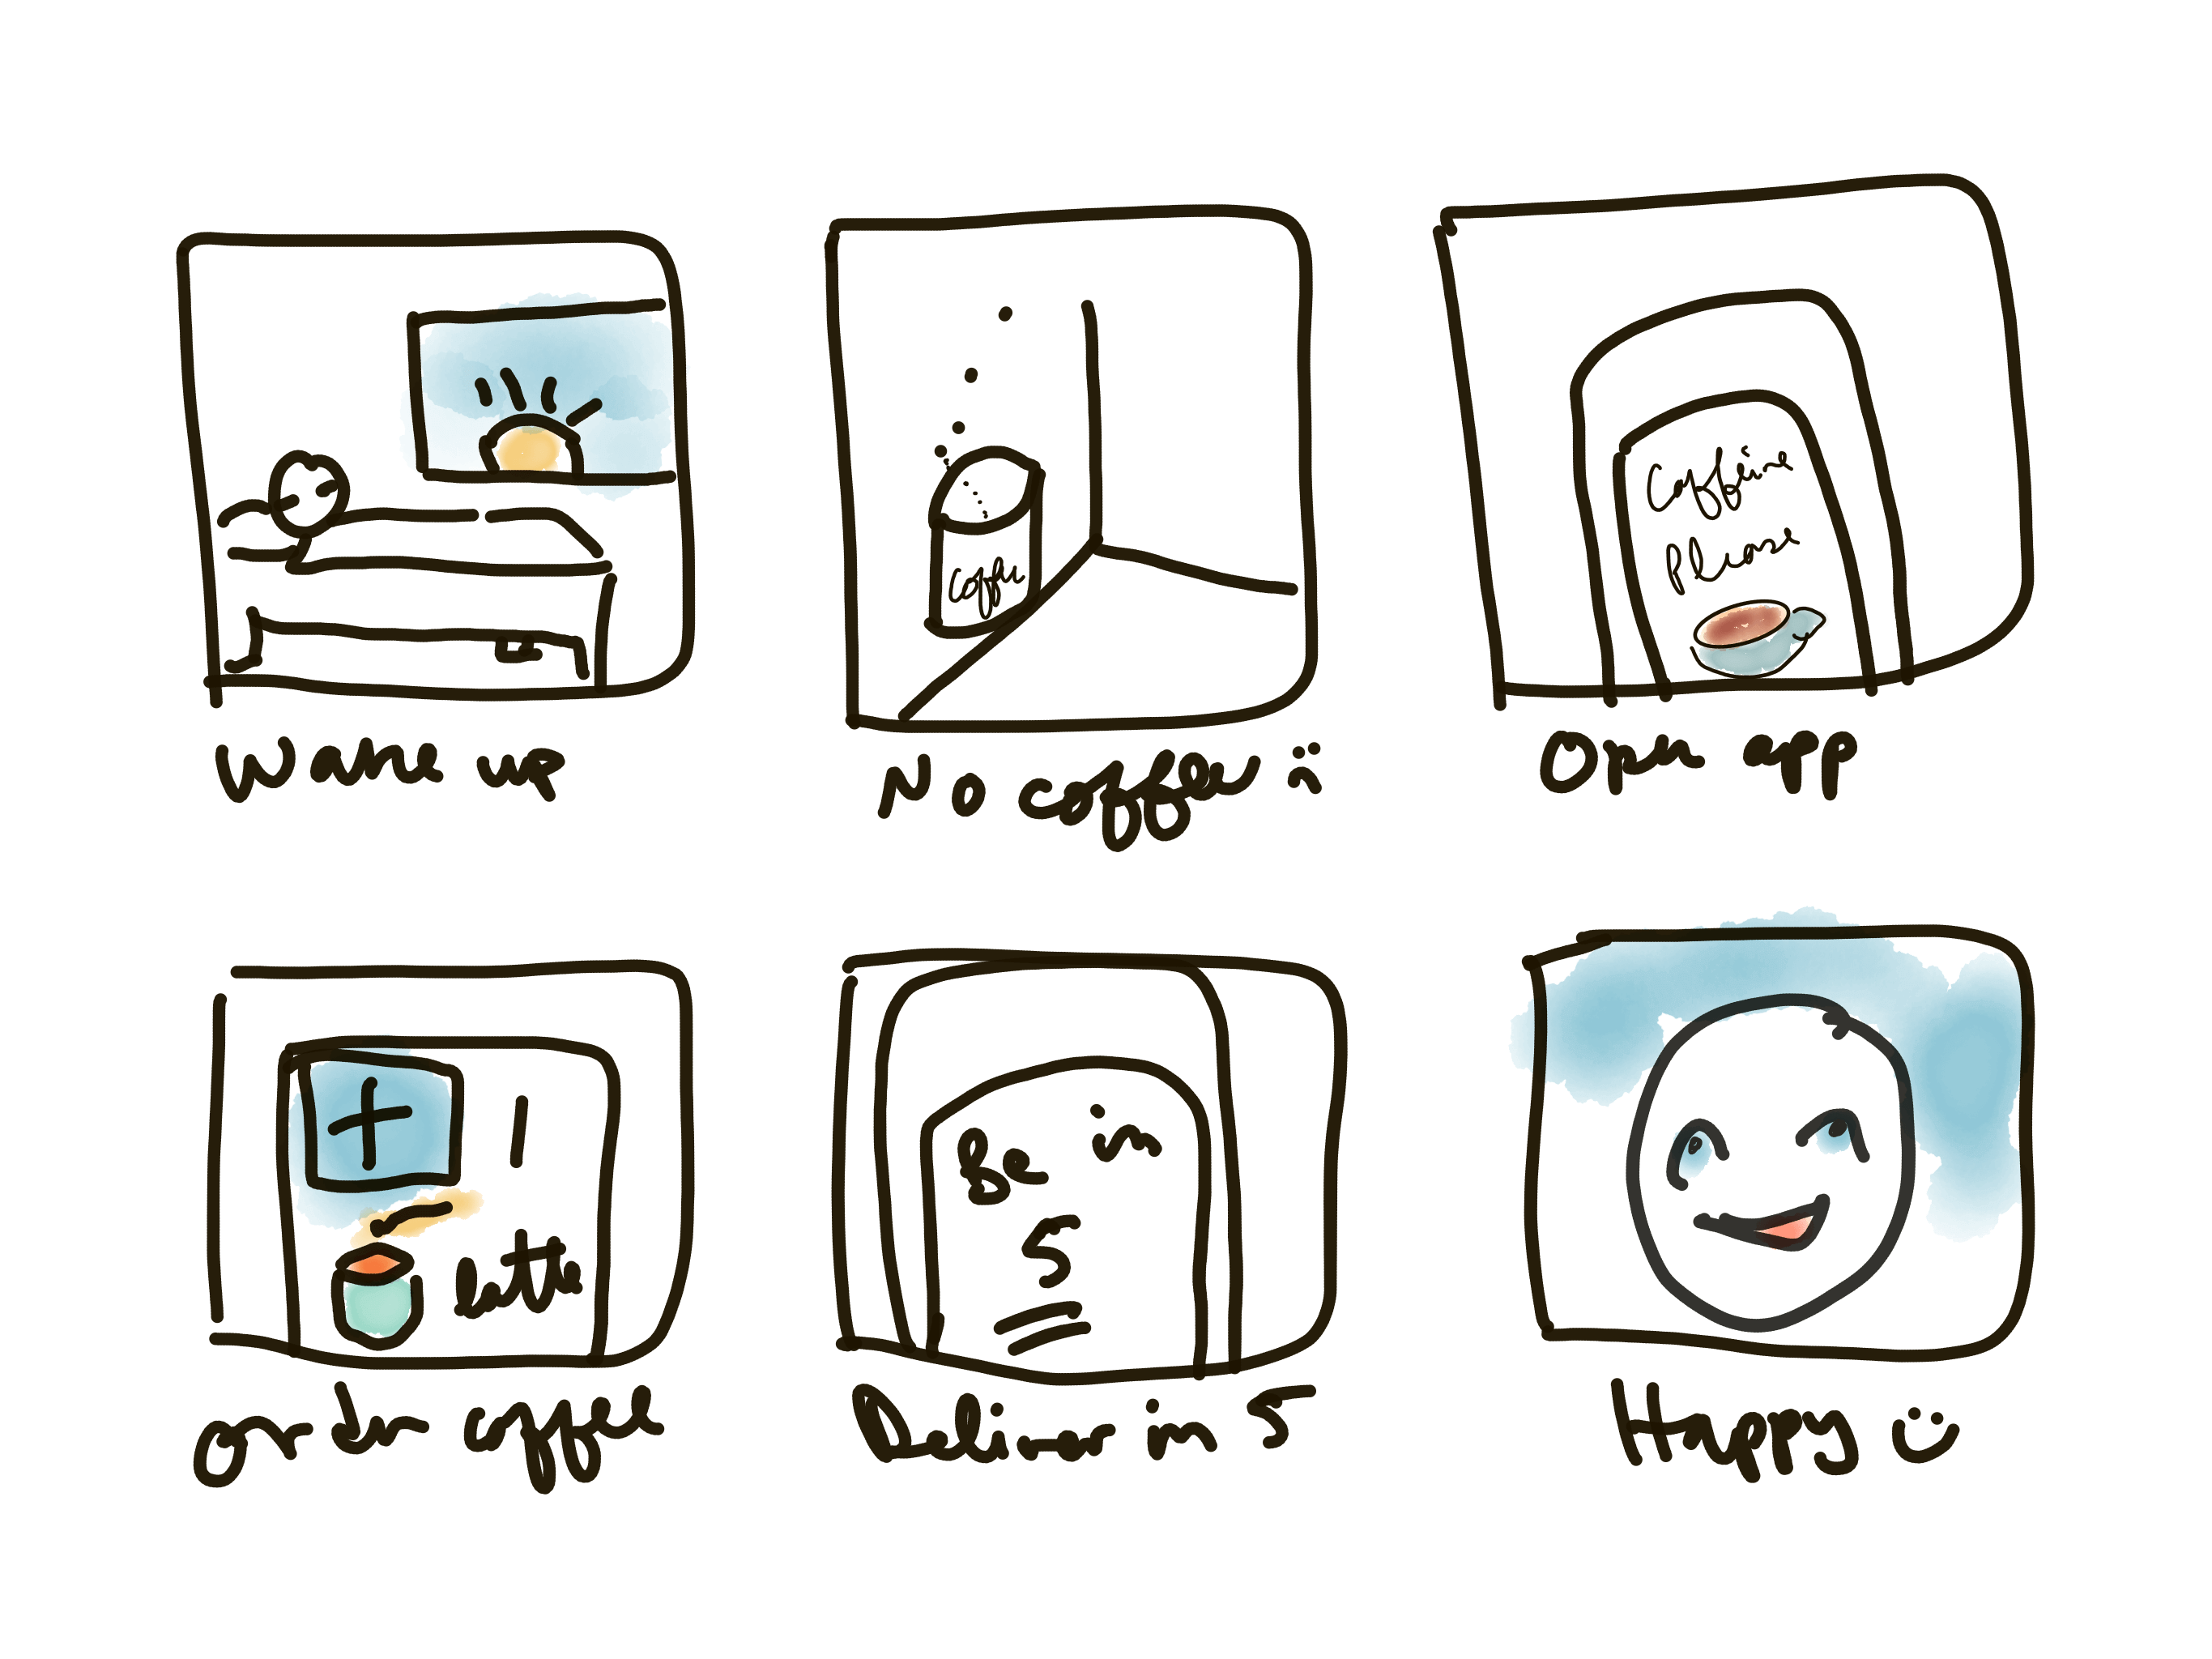 Coffee
Wake up
No coffee :(
Caffeine
Please
Open app
+
latte
order coffee
Be in
5
Deliver in 5
Happy :)